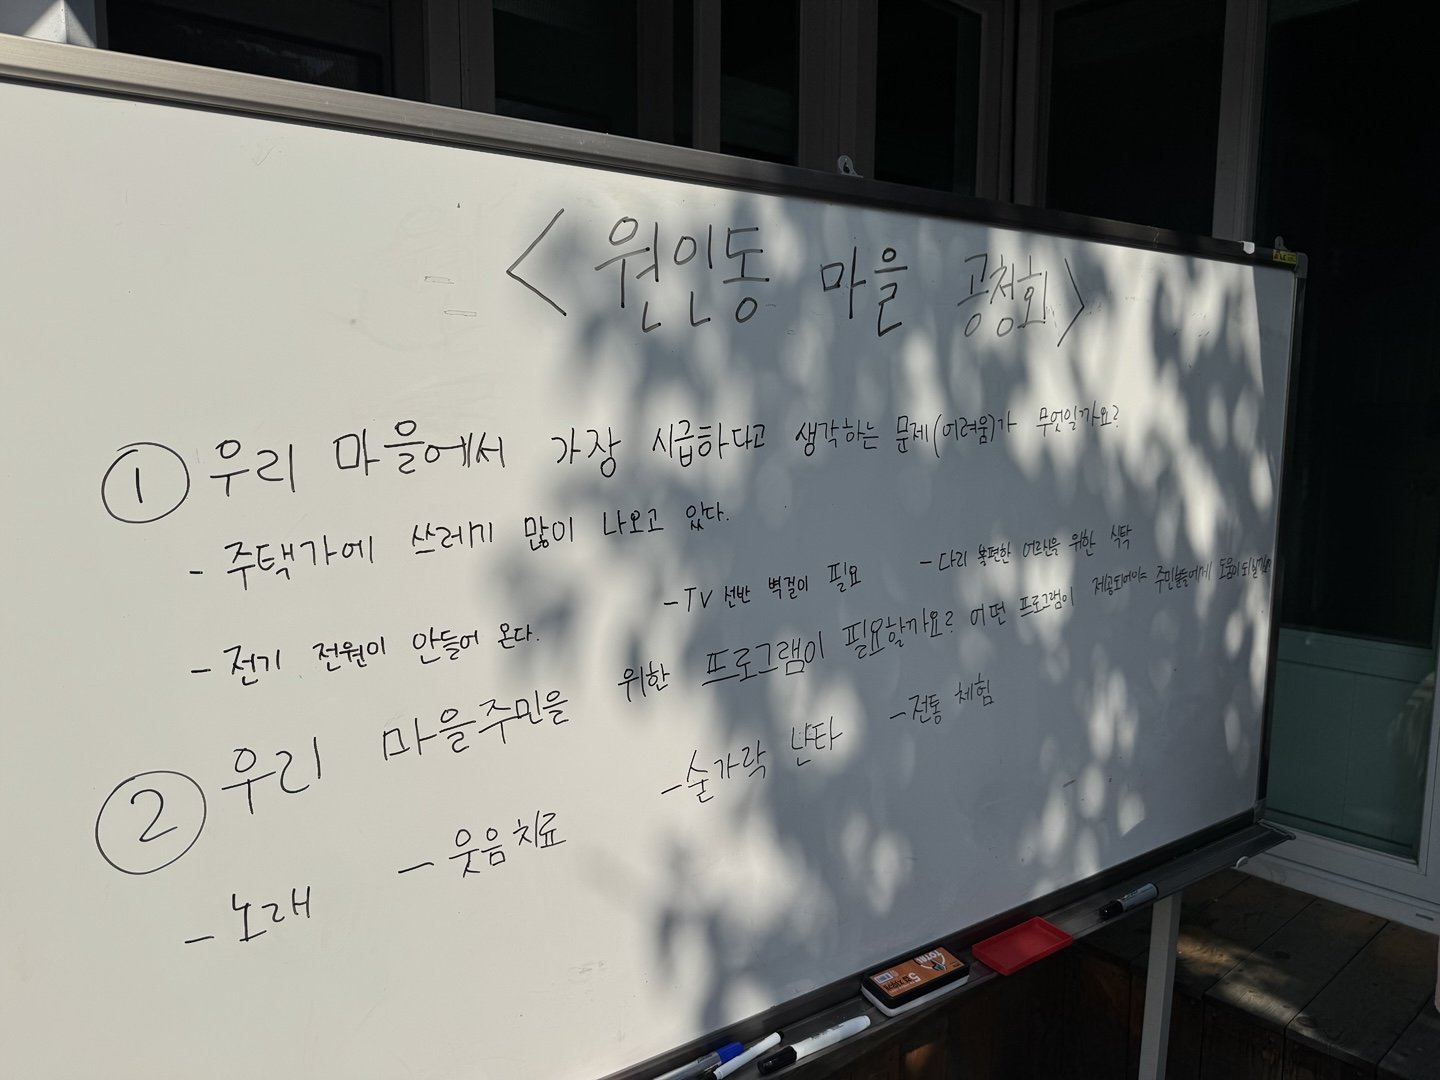 <원인동 마을 공청회>
① 우리 마을에서 가장 시급하다고 생각하는 문제(어려움)가 무엇일까요?
- 주택가에 쓰레기 많이 나오고 있다.
- TV 선반 벽걸이 필요
- 다리 불편한 어르신을 위한 식탁
- 전기 전원이 안들어 온다.
② 우리 마을주민을 위한 프로그램이 필요할까요? 어떤 프로그램이 제공되어야 주민분들에게 도움이 되실까요
- 노래
- 웃음치료
- 숟가락 난타
- 전통 체험
TOTAL